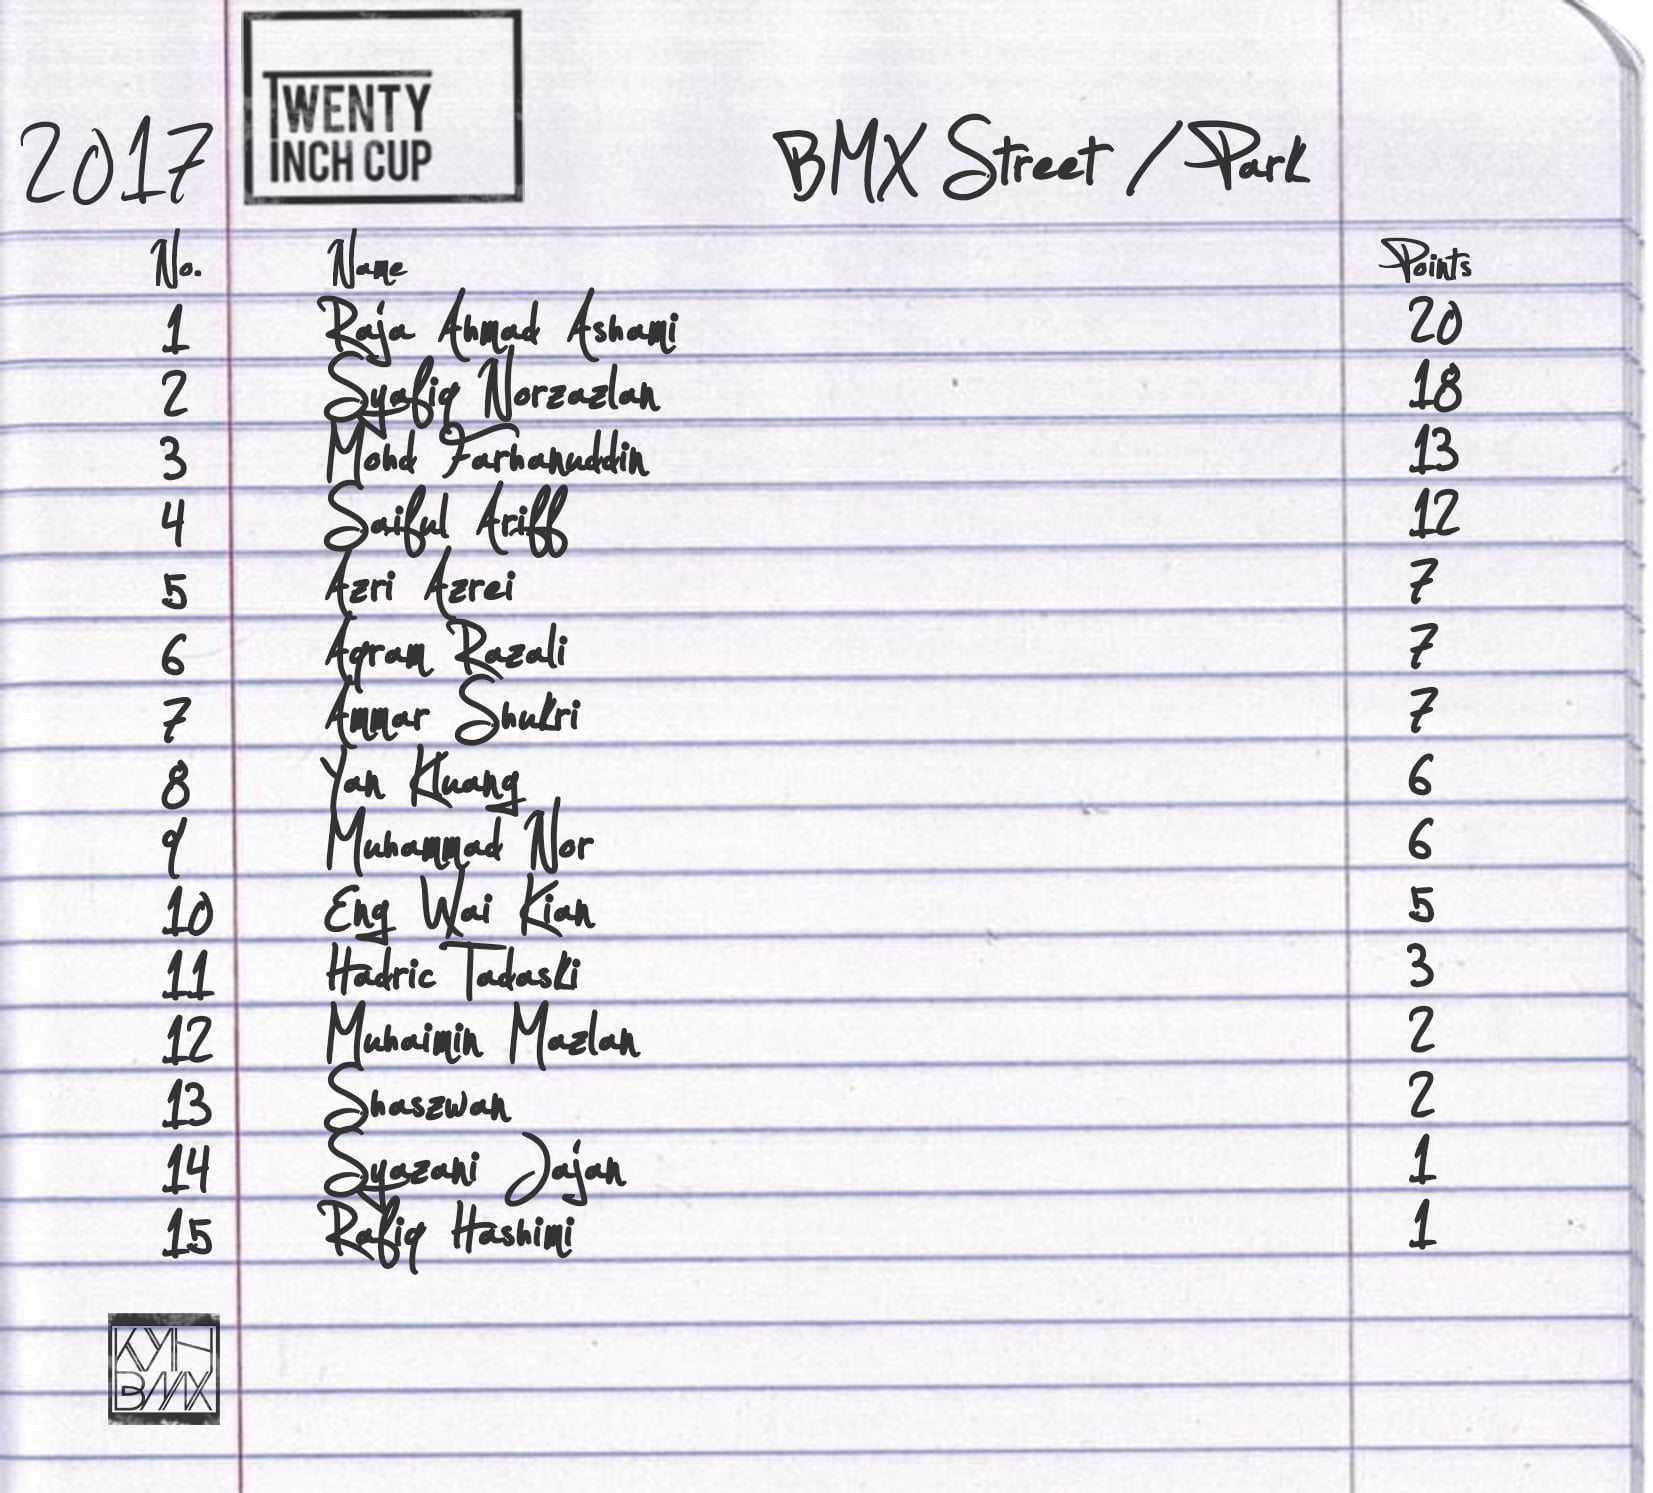 2017 TWENTY INCH CUP BMX Street / Park
No. Name Points
1 Raja Ahmad Ashami 20
2 Syafiq Norzazlan 18
3 Mohd Farhanuddin 13
4 Saiful Ariff 12
5 Azri Azrei 7
6 Aqram Razali 7
7 Ammar Shukri 7
8 Yan Kluang 6
9 Muhammad Nor 6
10 Eng Wai Kian 5
11 Hadric Tadaski 3
12 Muhaimin Mazlan 2
13 Shaszwan 2
14 Syazani Jajan 1
15 Rafiq Hashimi 1
BMX